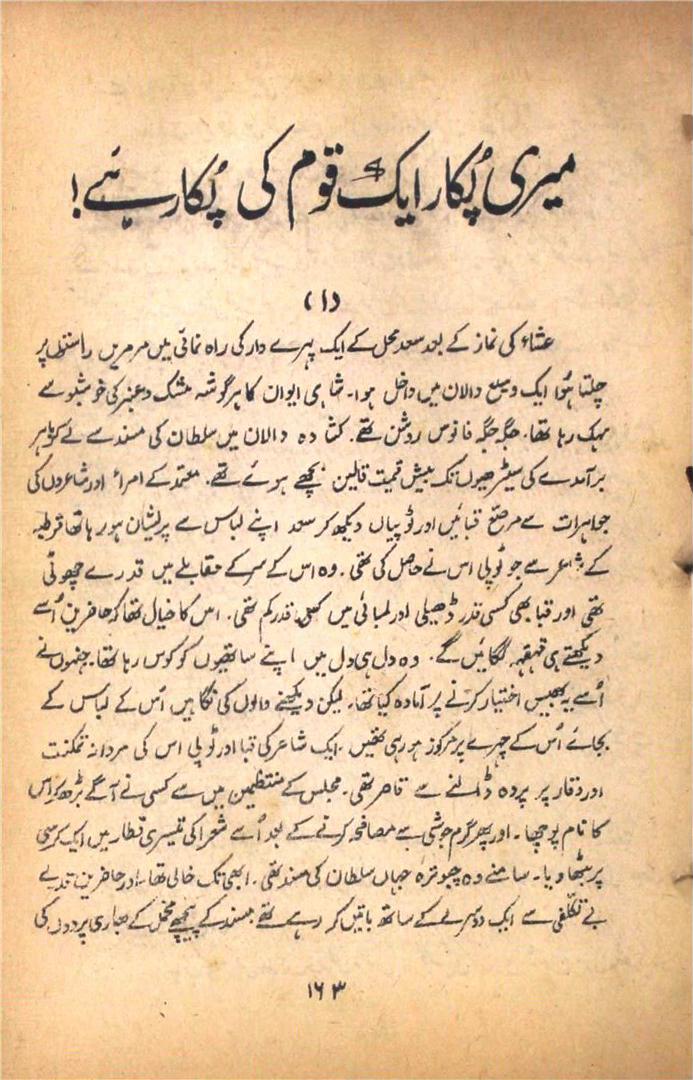 میری پُکار ایک قوم کی پُکار ہے!
(۱)
عشاء کی نماز کے بعد سعد محل کے ایک پہرے دار کی راہ نمائی میں مرمریں راستوں پر
چلتا ہُوا ایک وسیع دالان میں داخل ہوا۔ شاہی ایوان کا ہر گوشہ مشک و عنبر کی خوشبو سے
مہک رہا تھا۔ جگہ جگہ فانوس روشن تھے۔ کشادہ دالان میں سلطان کی مسند سے لے کر باہر
برآمدے کی سیڑھیوں تک بیش قیمت قالین بچھے ہوئے تھے۔ معتمد کے امراء اور شاعروں کی
جواہرات سے مرصّع قبائیں اور ٹوپیاں دیکھ کر سعد اپنے لباس سے پریشان ہو رہا تھا قرطبہ
کے شاعر سے جو ٹوپی اس نے حاصل کی تھی۔ وہ اس کے سر کے مقابلے میں قدرے چھوٹی
تھی اور قبا بھی کسی قدر ڈھیلی اور لمبائی میں کسی قدر کم تھی۔ اس کا خیال تھا کہ حاضرین اُسے
دیکھتے ہی قہقہہ لگائیں گے۔ وہ دل ہی دل میں اپنے ساتھیوں کو کوس رہا تھا۔ جنہوں نے
اُسے یہ بھیس اختیار کرنے پر آمادہ کیا تھا۔ لیکن دیکھنے والوں کی نگاہیں اس کے لباس کے
بجائے اُس کے چہرے پر مرکوز ہو رہی تھیں۔ ایک شاعر کی قبا اور ٹوپی اس کی مردانہ تمکنت
اور وقار پر پردہ ڈالنے سے قاصر تھی۔ مجلس کے منتظمین میں سے کسی نے آگے بڑھ کر اس
کا نام پوچھا۔ اور پھر گرم جوشی سے مصافحہ کرنے کے بعد اُسے شعرا کی تیسری قطار میں ایک کرسی
پر بٹھا دیا۔ سامنے وہ چبوترہ جہاں سلطان کی مسند تھی۔ ابھی تک خالی تھا۔ اور حاضرین قدرے
بے تکلّفی سے ایک دوسرے کے ساتھ باتیں کر رہے تھے مسند کے پیچھے مخمل کے بھاری پردوں کی
۱۶۳